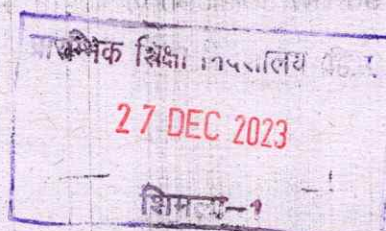 प्रारम्भिक शिक्षा निदेशालय
27 DEC 2023
शिमला-1